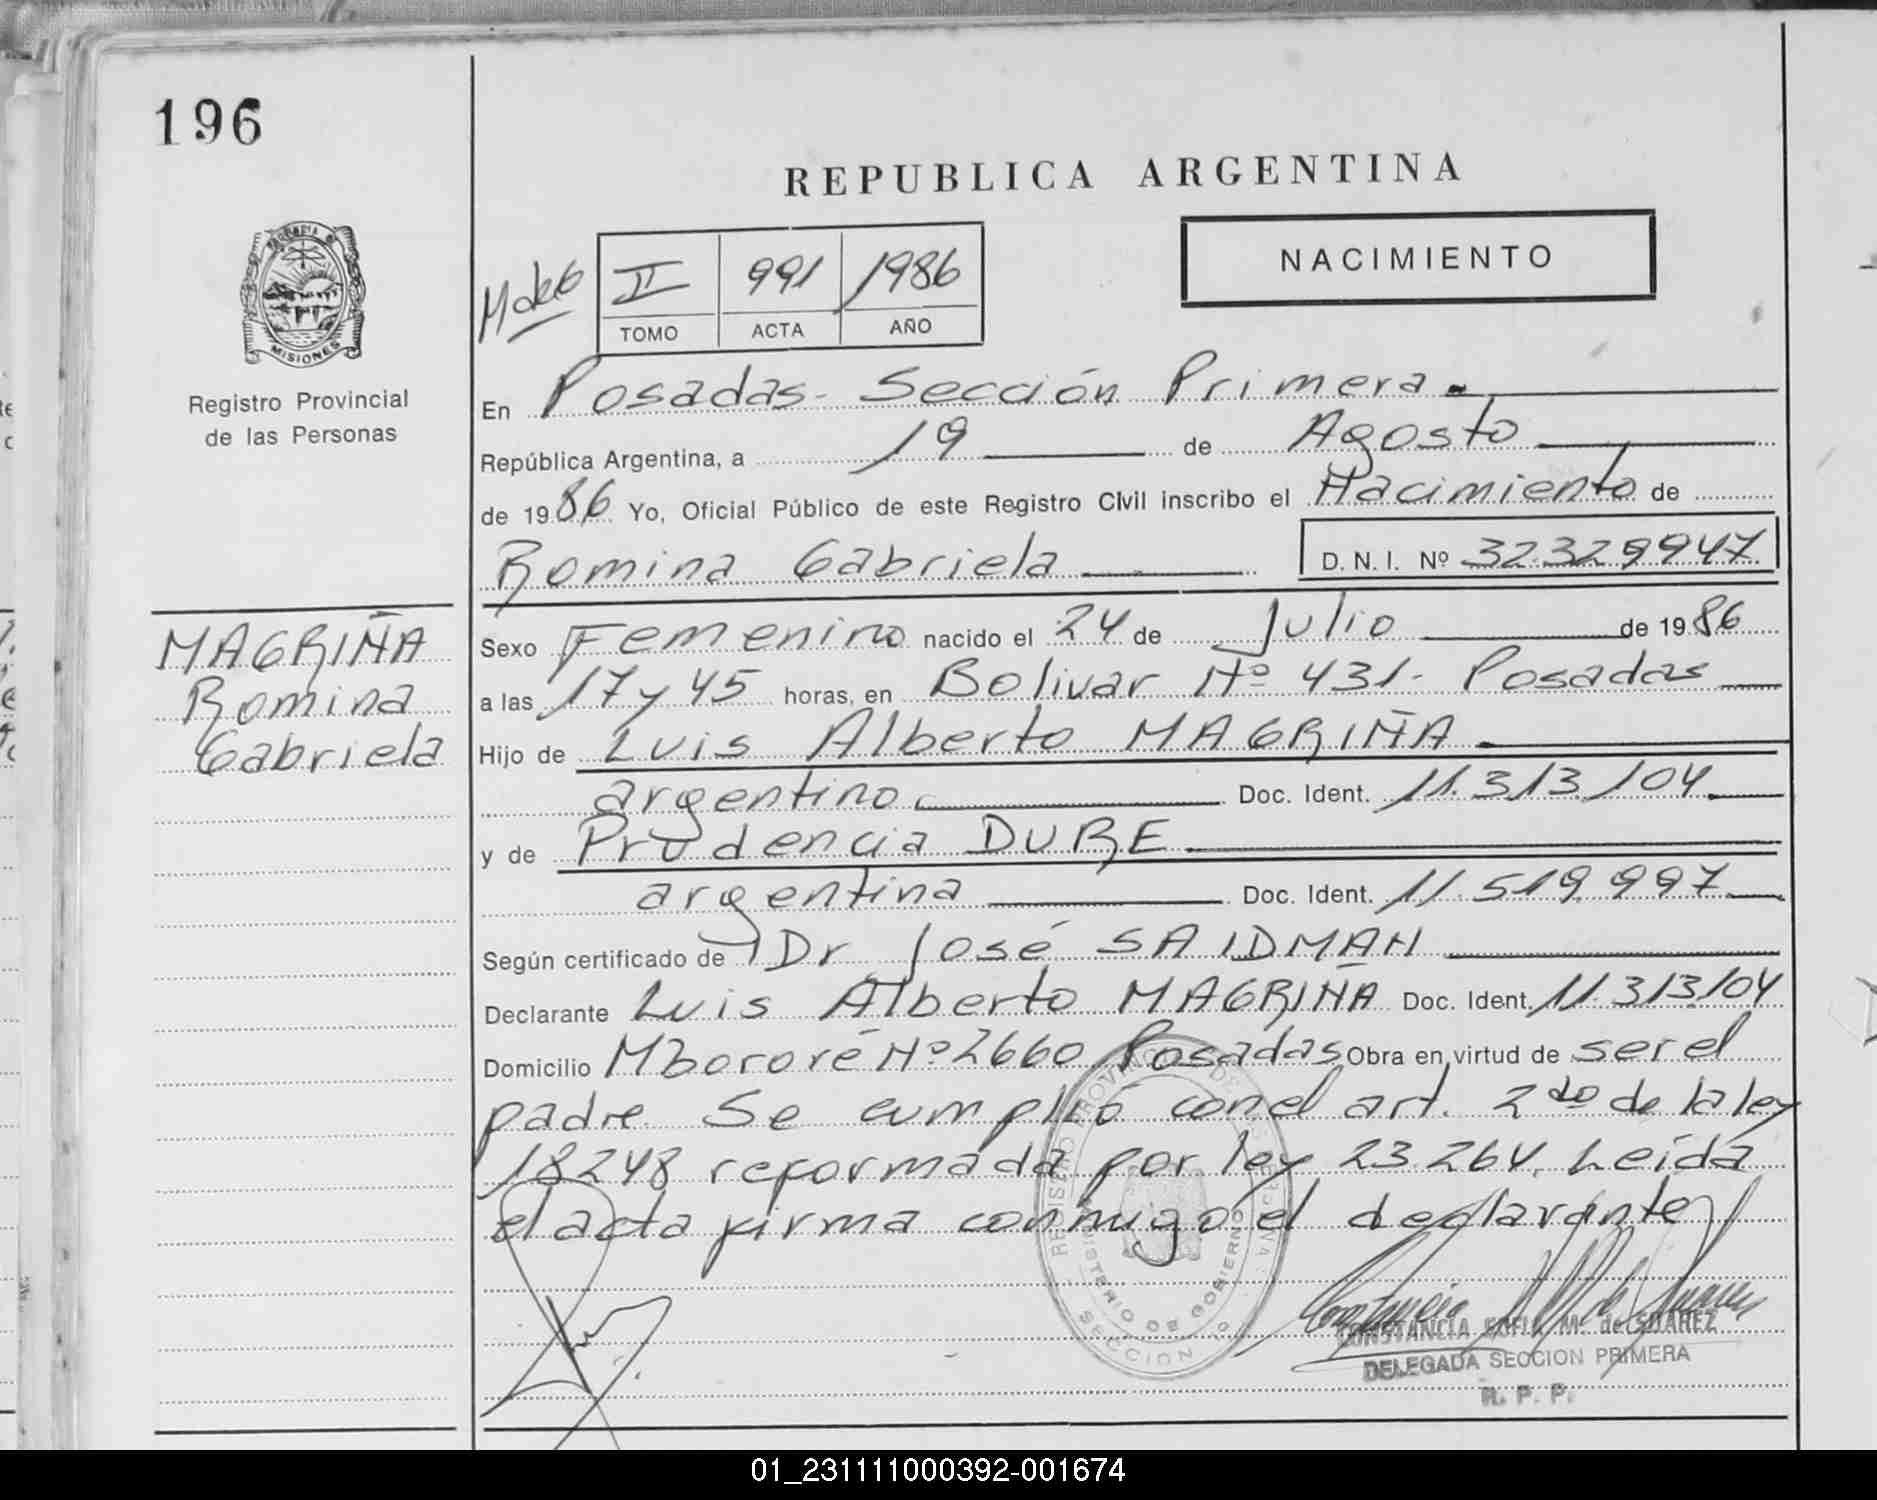 196
REPUBLICA ARGENTINA
NACIMIENTO
II 991 1986
TOMO ACTA AÑO
PROVINCIA DE
MISIONES
Registro Provincial
de las Personas
En Posadas - Sección Primera
República Argentina, a 19 de Agosto
de 1986 Yo, Oficial Público de este Registro Civil inscribo el Nacimiento de
Romina Gabriela D. N. I. Nº 32.329947
MAGRIÑA
Romina
Gabriela
Sexo Femenino nacido el 24 de Julio de 1986
a las 17 y 45 horas, en Bolivar Nº 431 - Posadas
Hijo de Luis Alberto MAGRIÑA
argentino Doc. Ident. 11.313.104
y de Prudencia DURE
argentina Doc. Ident. 11.519.997
Según certificado de Dr José SAIDMAN
Declarante Luis Alberto MAGRIÑA Doc. Ident. 11.313.104
Domicilio Mbororé Nº 2660 Posadas Obra en virtud de ser el
padre. Se cumplió con el art. 2do de la ley
18248 reformada por ley 23264. Leída
el acta firma conmigo el declarante
REGISTRO PROVINCIAL DE LAS PERSONAS
MINISTERIO DE GOBIERNO
SECCION 1
CONSTANCIA SOFIA M. de SUAREZ
DELEGADA SECCION PRIMERA
R. P. P.
01_231111000392-001674